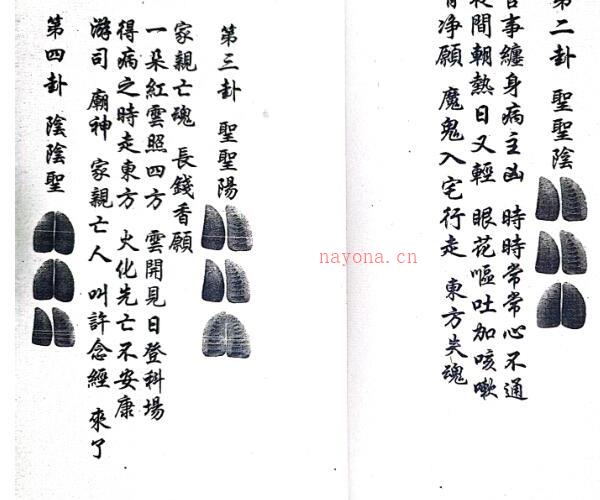 第二卦 聖聖陰
事纏身病主凶 時時常常心不通
間朝熱日又輕 眼花嘔吐加咳嗽
净願 魔鬼入宅行走 東方失魂
第三卦 聖聖陽
家親亡魂 長錢香願
一朵紅雲照四方 雲開見日登科場
得病之時走東方 火化先亡不安康
游司 廟神 家親亡人 叫許念經 來了
第四卦 陰陰聖
nayona.cn